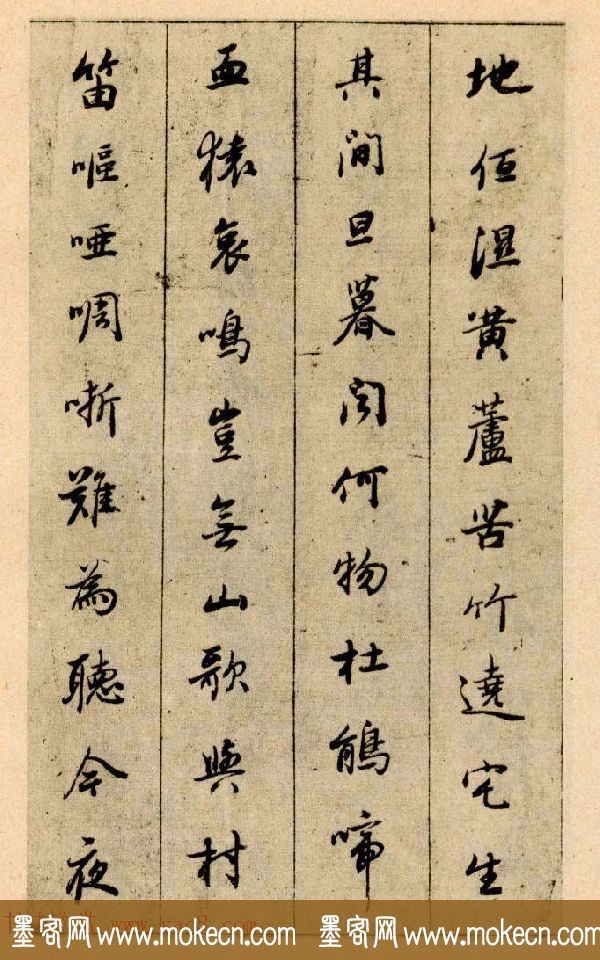 地低湿黄蘆苦竹遶宅生
其間旦暮聞何物杜鵑啼
血猿哀鳴豈無山歌與村
笛嘔啞啁哳難為聽今夜
墨客网 www.mokecn.com 墨客网 www.mokecn.com